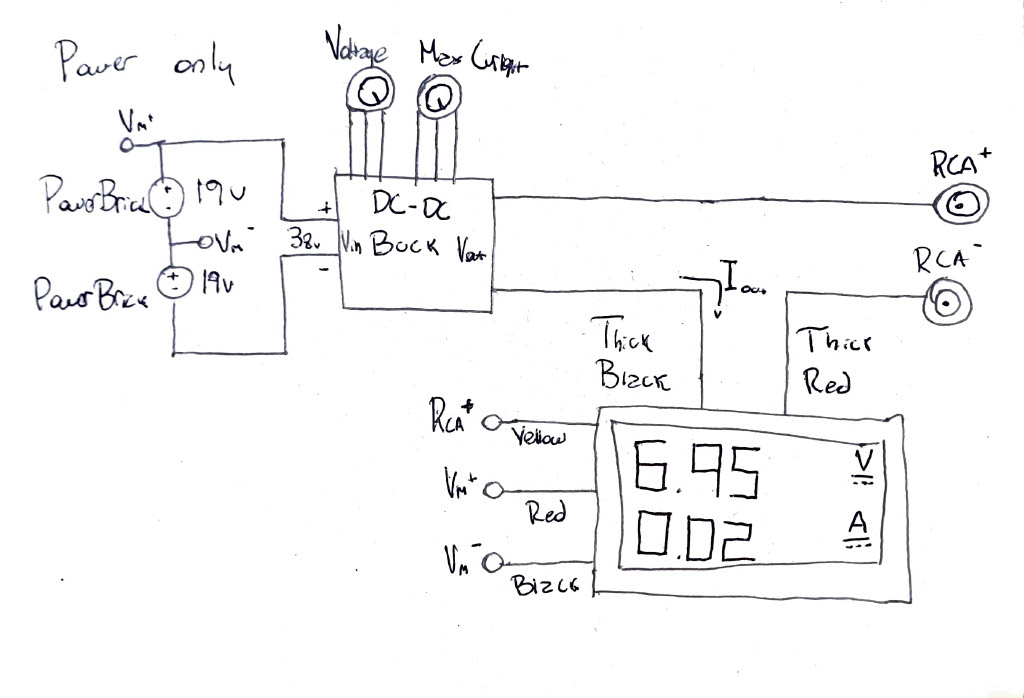 Power only
Voltage
Max Current
VM+
PowerBrick 19v
VM-
PowerBrick 19v
38v
+
-
DC-DC
Vin Buck Vout
RCA+
RCA-
Iout
Thick
Black
Thick
Red
RCA+
Yellow
VM+
Red
VM-
Black
6.95 V
0.02 A